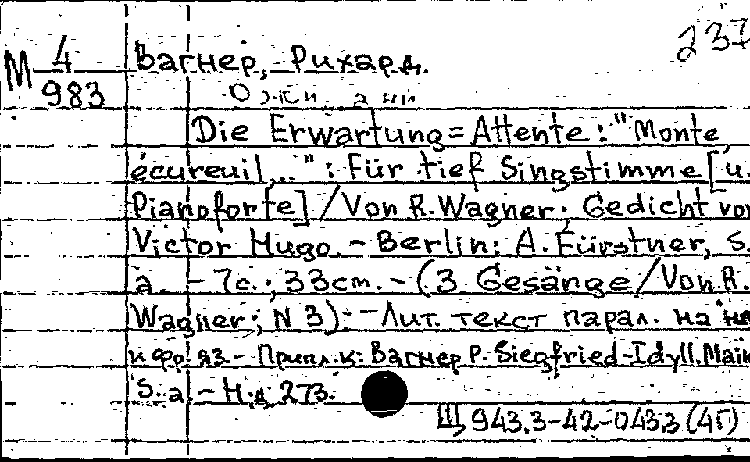 237
М 4/983 Вагнер, Рихард.
Die Erwartung = Attente: "Monte,
écureuil..." : Für tief Singstimme [u.
Pianoforte] / Von R. Wagner; Gedicht von
Victor Hugo. - Berlin: A. Fürstner, S.
a. - 7с.; 33cm. - (3 Gesänge / Von R.
Wagner; N 3). - Лит. текст парал. на не
и фр. яз. - Припл. к: Вагнер Р. Siegfried-Idyll. Main
S. a. - Н.д. 273.
Щ 943.3-42-043.3 (45)